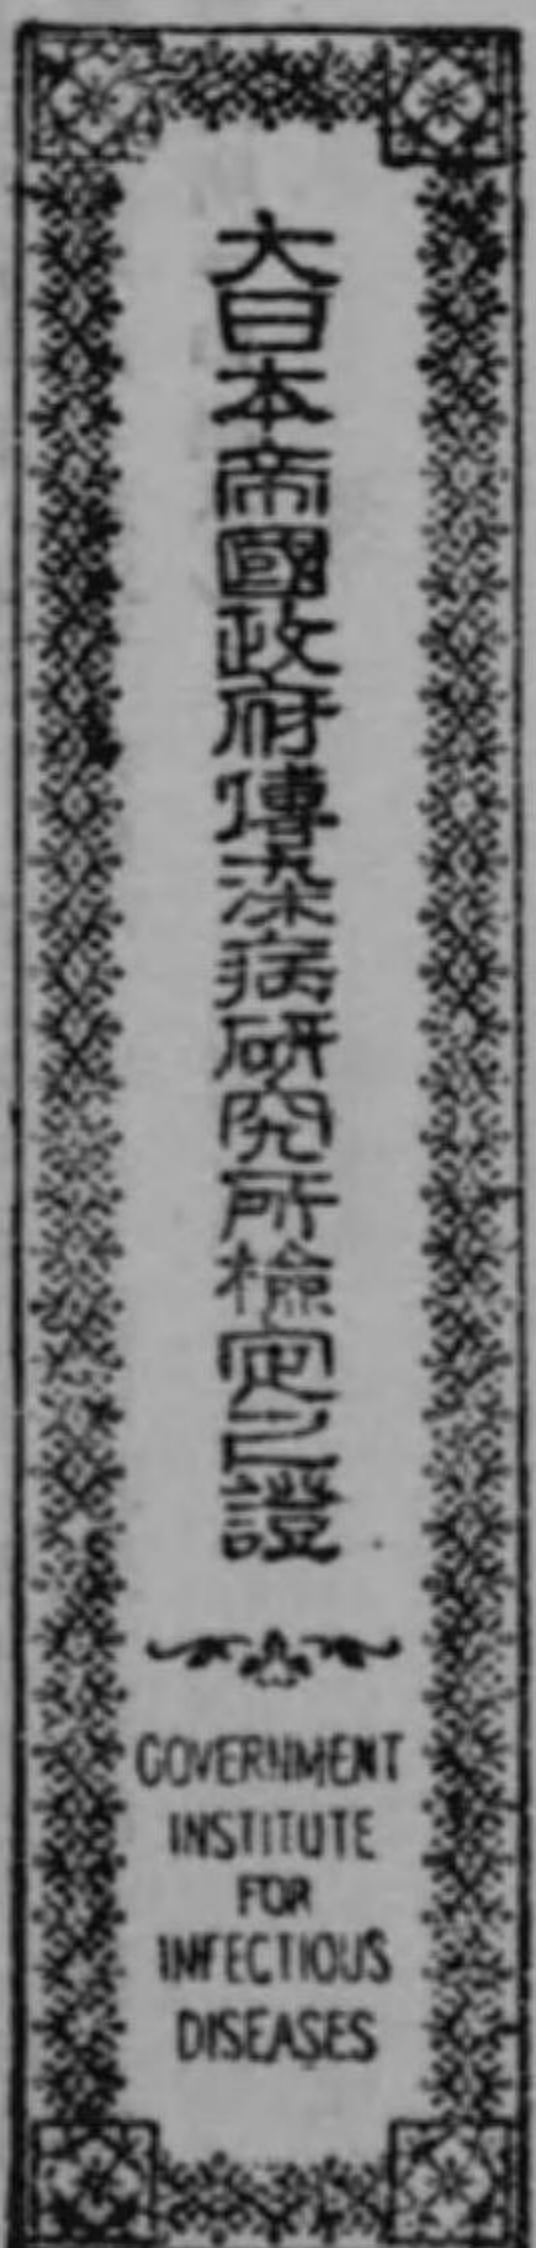 大日本帝國政府傳染病研究所檢定之證
GOVERNMENT
INSTITUTE
FOR
INFECTIOUS
DISEASES